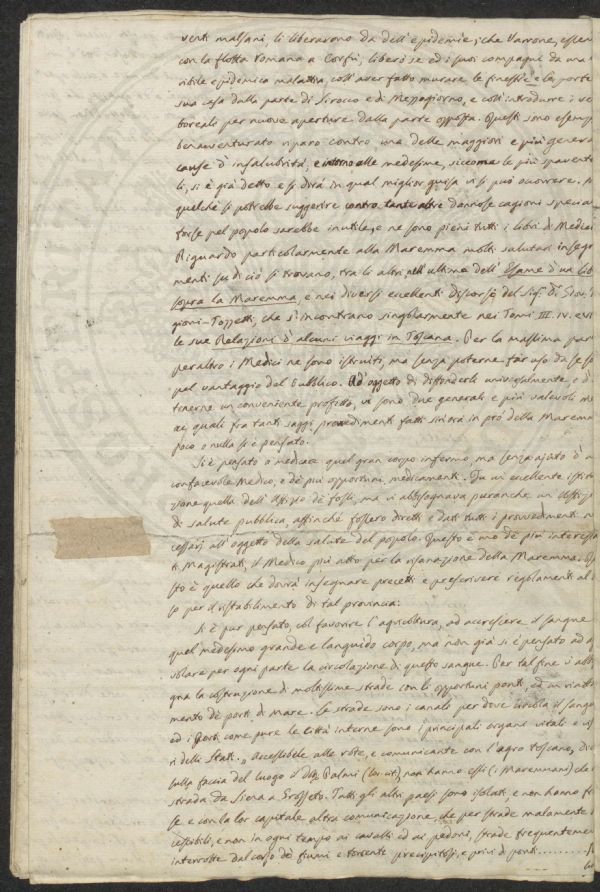 venti malsani, li liberarono da dell'epidemie; che Varrone, essen
con la flotta romana a Corfù, liberò se ed i suoi compagni da una
ribile epidemica malattia coll'aver fatto murare le finestre e la porte
sua casa dalla parte di Scirocco e di Mezzogiorno, e coll'introdurre i ve
boreali per nuove aperture dalla parte opposta. Questi sono esemp
benavventurato riparo contro una delle maggiori e più genera
cause d'insalubrità, e intorno alle medesime, siccome le più spavente
li, si è già detto e si dirà in qual miglior guisa vi si può occorrere.
quelche si potrebbe suggerire contro tante altre dannose cagioni specia
forse pel popolo sarebbe inutile, e ne sono pieni tutti i libri di Medici
Riguardo particolarmente alla Maremma molti salutari insegna
menti su di ciò si trovano, tra li altri nell'ultimo dell'Esame d'un lib
sopra la Maremma, e nei diversi eccellenti Discorsi del Sig. D. Giov.
gioni-Tozzetti, che s'incontrano singolarmente nei Tomi III. IV. e VI
le sue Relazioni d'alcuni viaggi in Toscana. Per la massima par
peraltro i Medici ne sono istruiti, ma senza poterne far uso da se
pel vantaggio del Pubblico. Ad oggetto di diffonderli universalmente, e d'
tenerne un conveniente profitto, vi sono due generali e più valevoli me
ai quali fra tanti saggi provedimenti fatti sinora in prò della Maremma
poco o nulla si è pensato.
Si è pensato a medicare quel gran corpo infermo, ma senza ajuto d'u
confacevole Medico, e de' più opportuni medicamenti. Fu un eccellente istitu
zione quella dell'Uffizio de' fossi, ma vi abbisognava puranche un Uffizio
di salute pubblica, affinchè fossero diretti e dati tutti i provvedimenti n
cessarj all'oggetto della salute del popolo. Questo è uno de' più interessa
ti Magistrati, il Medico più atto per la risanazione della Maremma.
sto è quello che dovrà insegnare precetti e prescrivere regolamenti al
so per il ristabilimento di tal provincia:
Si è pur pensato, col favorire l'agricoltura, ad accrescere il sangue
quel medesimo grande e languido corpo, ma non già si è pensato ad a
volare per ogni parte la circolazione di questo sangue. Per tal fine vi abbi
gna la costruzione di moltissime strade con li opportuni ponti, ed un riatta
mento de' porti di mare. Le strade sono i canali per dove circola il sangu
ed i Porti come pure le Città interne sono i principali organi vitali e vis
ri delli Stati. „ Accessibile alle rote, e comunicante con l'agro toscano, di
sulla faccia del luogo il Palmi (loc. cit.) non hanno essi (i Maremmani) che
strada da Siena a Grosseto. Tutti gli altri paesi sono isolati, e non hanno fr
se e con la lor capitale altra comunicazione, che per strade malamente
cessibili, e non in ogni tempo ai cavalli ed ai pedoni, strade frequenteme
interrotte dal corso de' fiumi e torrente precipitosi, e privi di ponti..........